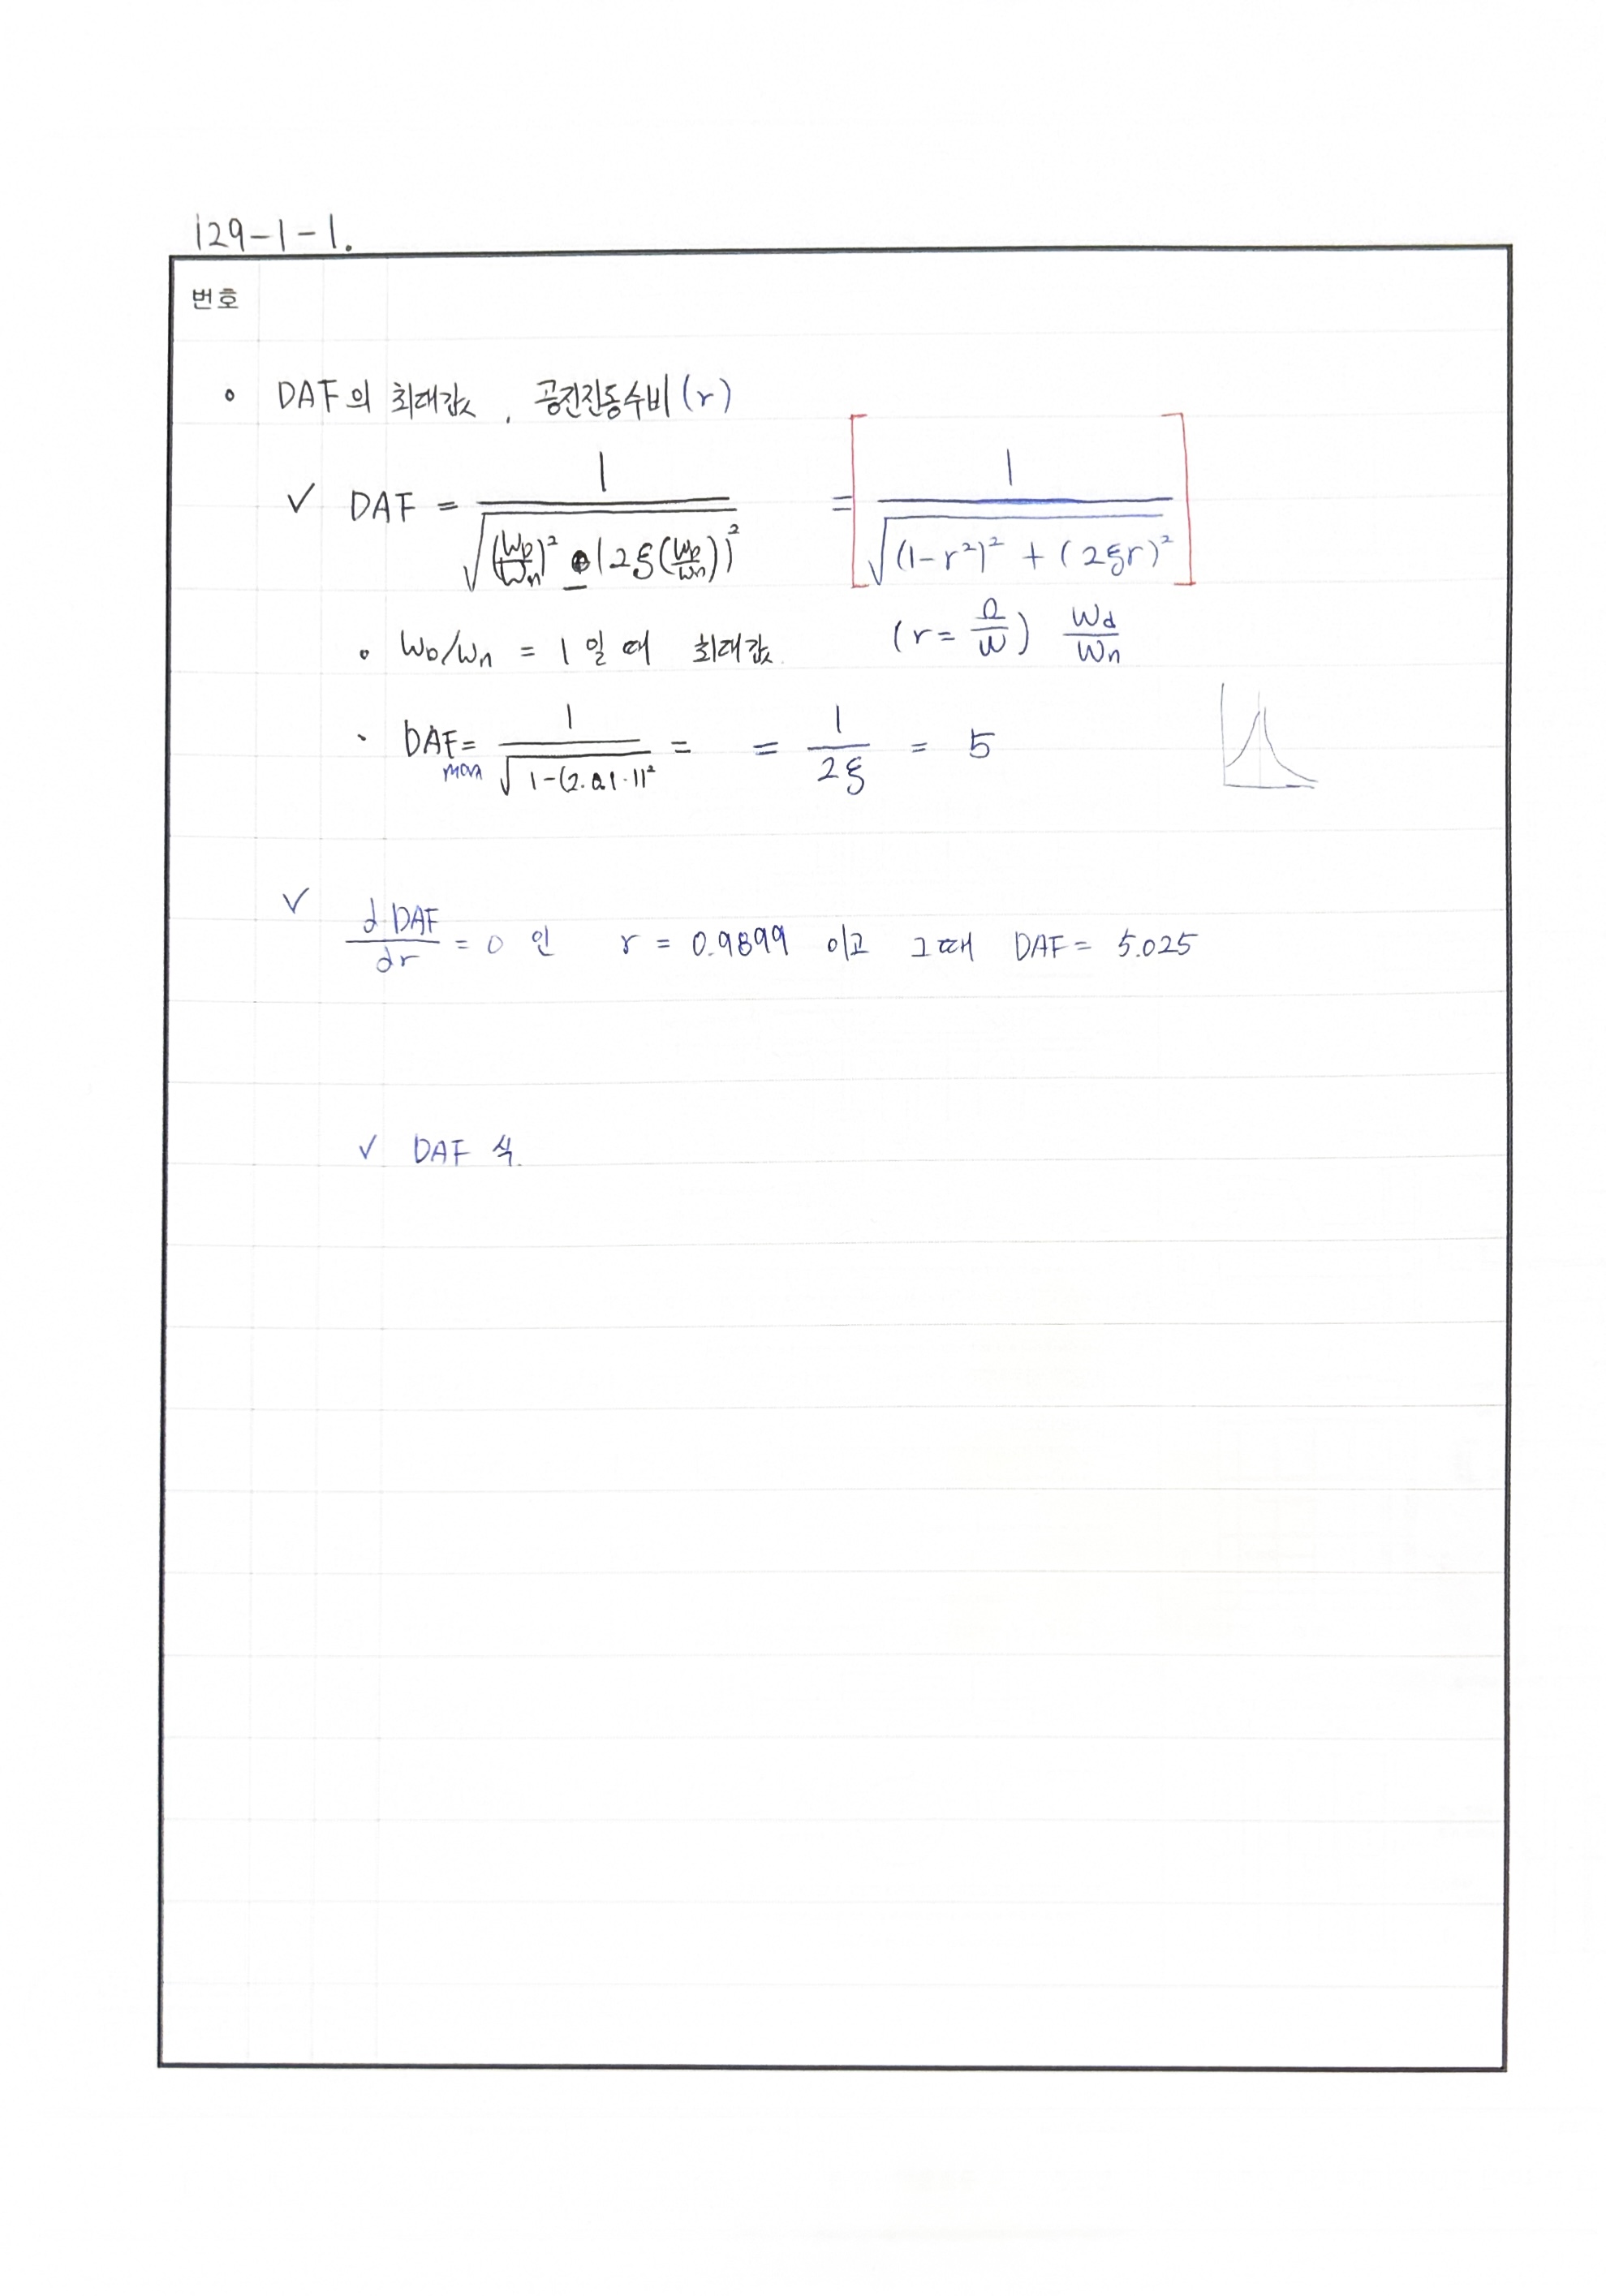 129-1-1.
번호
∘ DAF의 최대값, 공진진동수비(r)
✓ DAF = 1 / √((ω_D/ω_n)² (2ξ(ω_D/ω_n))²) = [ 1 / √((1-r²)² + (2ξr)²) ]
∘ ω_D/ω_n = 1 일 때 최대값. (r = Ω/ω) ω_d/ω_n
· DAF_max = 1 / √(1-(2·0.1·1)² = = 1/2ξ = 5
✓ d DAF/dr = 0 인 r = 0.9899 이고 그때 DAF = 5.025
✓ DAF 식.